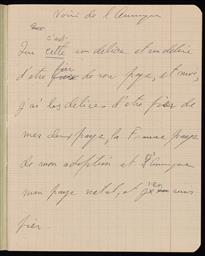 Voici de l'Amérique
c'est
Que cette un délice, et un délice
fier
d'être de son pays, et moi,
j'ai les délices d'être fier de
mes deux pays, la France pays
de mon adoption et l'Amérique
mon pays natal, et j'en suis
fier